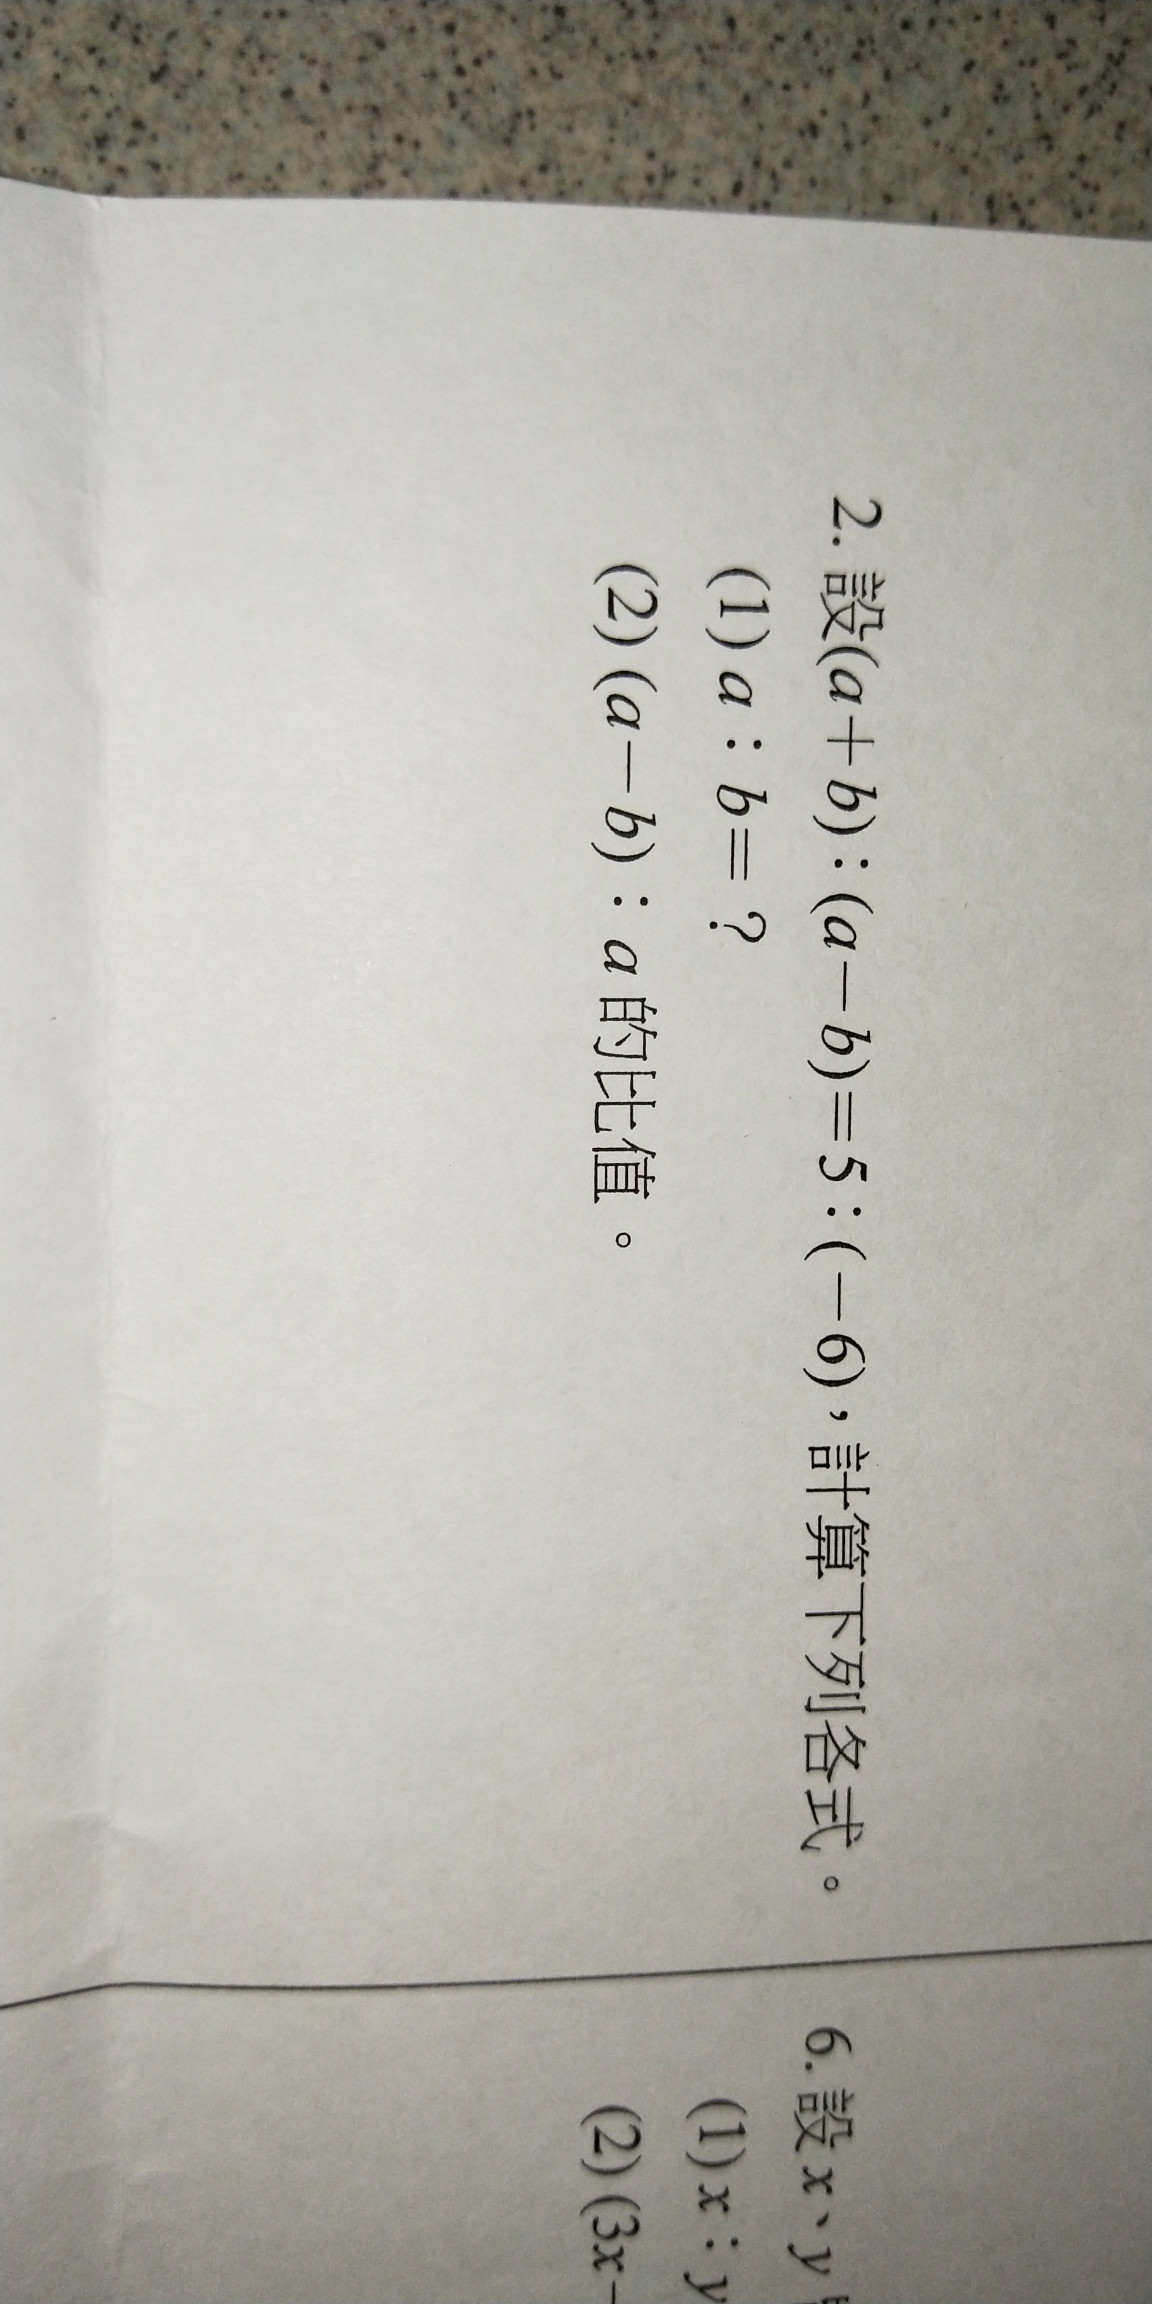 2. 設(a+b):(a-b)=5:(-6),計算下列各式。
(1) a:b=?
(2) (a-b):a 的比值。
6. 設 x、y
(1) x:y
(2) (3x-